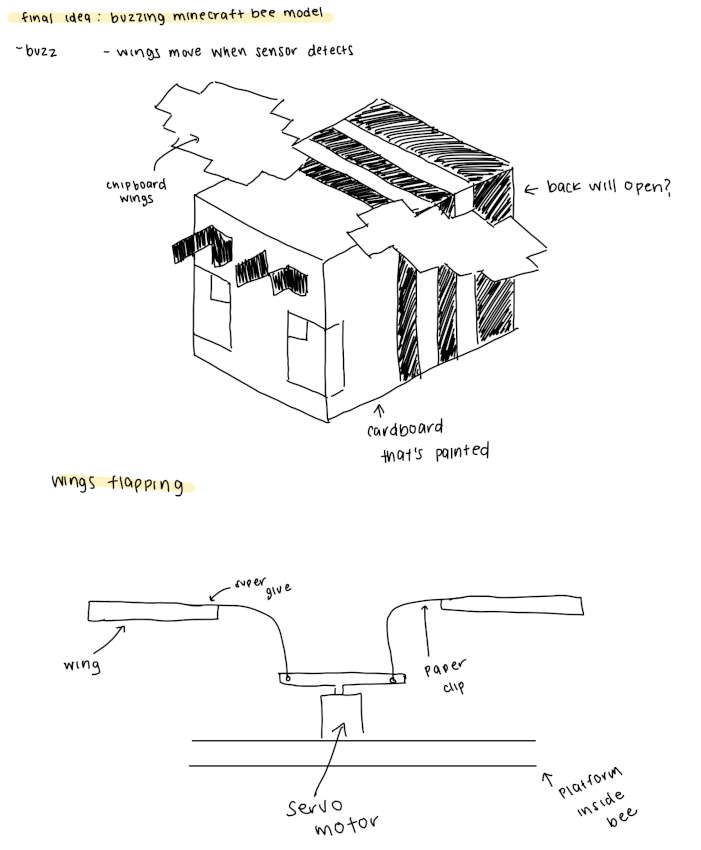 final idea : buzzing minecraft bee model
~buzz - wings move when sensor detects
chipboard
wings
← back will open?
cardboard
that's painted
wings flapping
super
glue
wing
paper
clip
servo
motor
platform
inside
bee